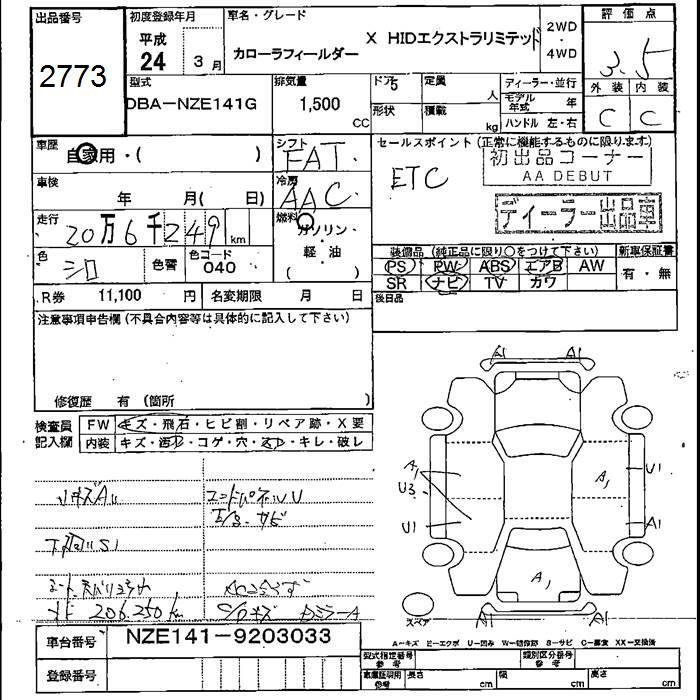 出品番号
2773
初度登録年月
平成
24 3 月
車名・グレード
カローラフィールダー X HIDエクストラリミテッド
2WD
・
4WD
評価点
3.5
外装 内装
C C
型式
DBA-NZE141G
排気量
1,500
CC
ドア 5
形状
定員
人
積載
kg
ディーラー・並行
モデル年式 年
ハンドル 左・右
車歴
自家用・( )
シフト
FAT
車検
年 月( 日)
冷房
AAC
走行
20万6千249 km
燃料
ガソリン・
軽・油
( )
色
シロ
色替
色コード
040
R券 11,100 円
名変期限 月 日
セールスポイント (正常に機能するものに限ります)
ETC
初出品コーナー
AA DEBUT
ディーラー出品車
装備品 (純正品に限り○をつけて下さい)
新車保証書
PS PW ABS エアB AW
SR ナビ TV カワ
有・無
後日品
注意事項申告欄 (不具合内容等は具体的に記入して下さい)
修復歴 有 (箇所 )
検査員
記入欄
FW キズ・飛石・ヒビ割・リペア跡・X要
内装 キズ・汚れ・コゲ・穴・スレ・キレ・破レ
A1 A1
A1
U3
U1
A1
U1
A1
A1
A1 A1
スペア
206,250 km
A-キズ E-エクボ U-凹み W-補修跡 S-サビ C-腐食 XX-交換済
車台番号
NZE141-9203033
登録番号
型式指定番号
参考
類別区分番号
参考
車庫証明用
参考
長さ cm
幅 cm
高さ cm